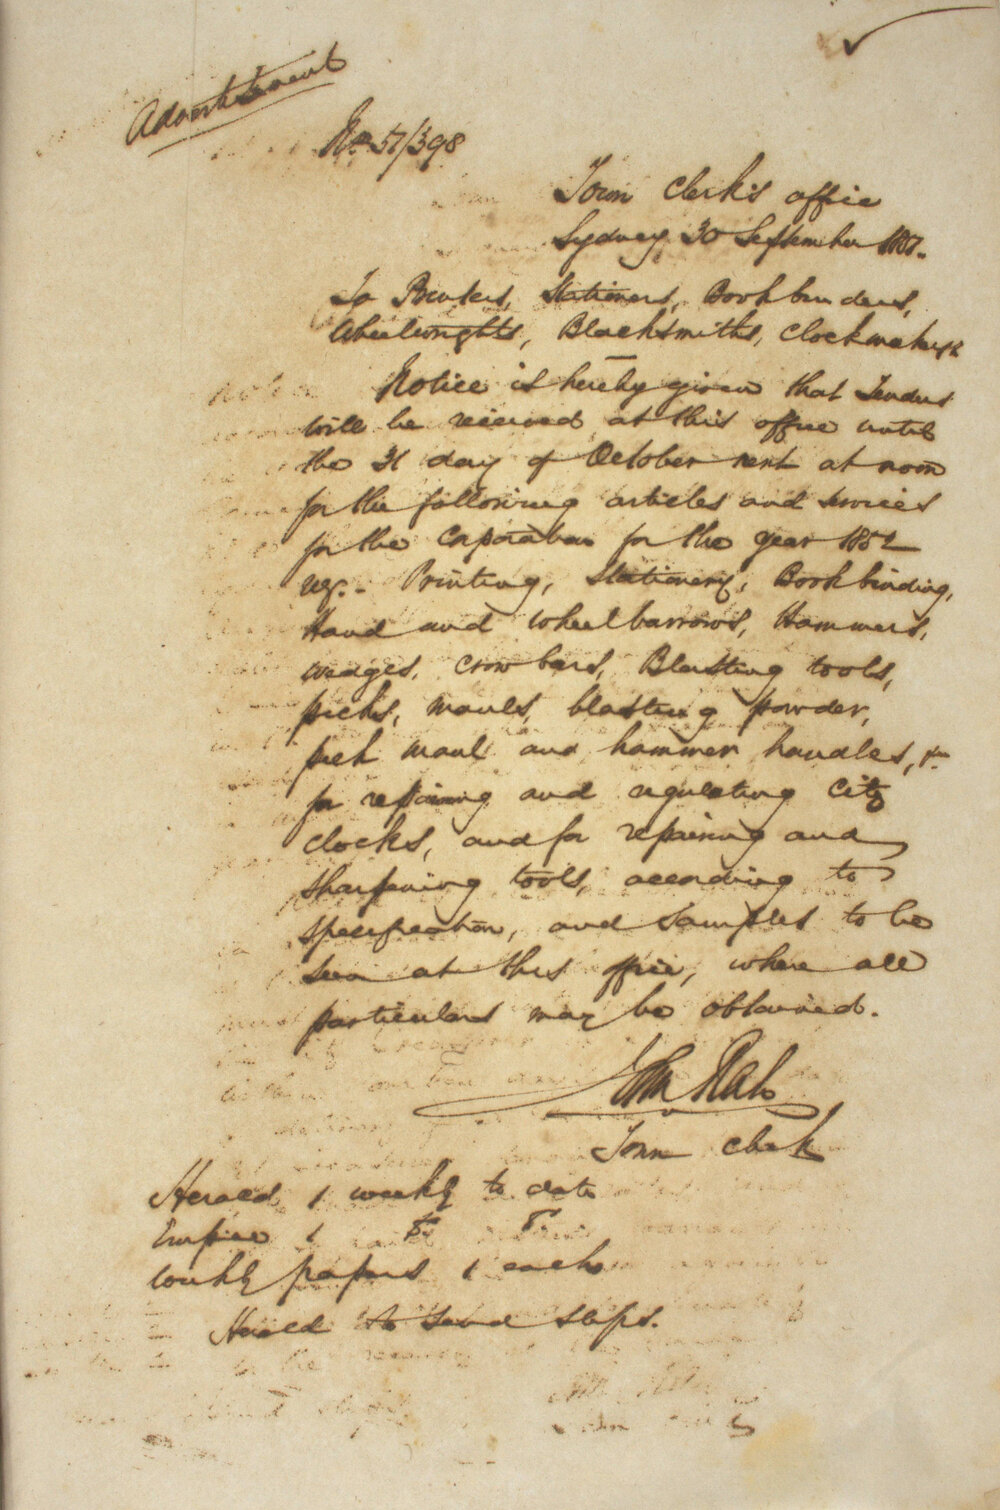 Advertisement
No 51/398
Town Clerk's office
Sydney 30 September 1851.
To Printers, Stationers, Bookbinders,
Wheelwrights, Blacksmiths, Clockmakers &
Notice is hereby given that Tenders
will be received at this office until
the 31 day of October next at noon
for the following articles and services
for the Corporation for the year 1852
viz. - Printing, Stationery, Bookbinding,
Hand and wheelbarrows, Hammers,
wedges, crow bars, Blasting tools,
picks, mauls, blasting powder,
pick maul and hammer handles, &c
for repairing and regulating City
clocks, and for repairing and
sharpening tools, according to
specification, and samples to be
seen at this office, where all
particulars may be obtained.
John Rae
Town Clerk
Herald 1 weekly to date
Empire 1 Do. Do.
Weekly papers 1 each
Herald to send slips.